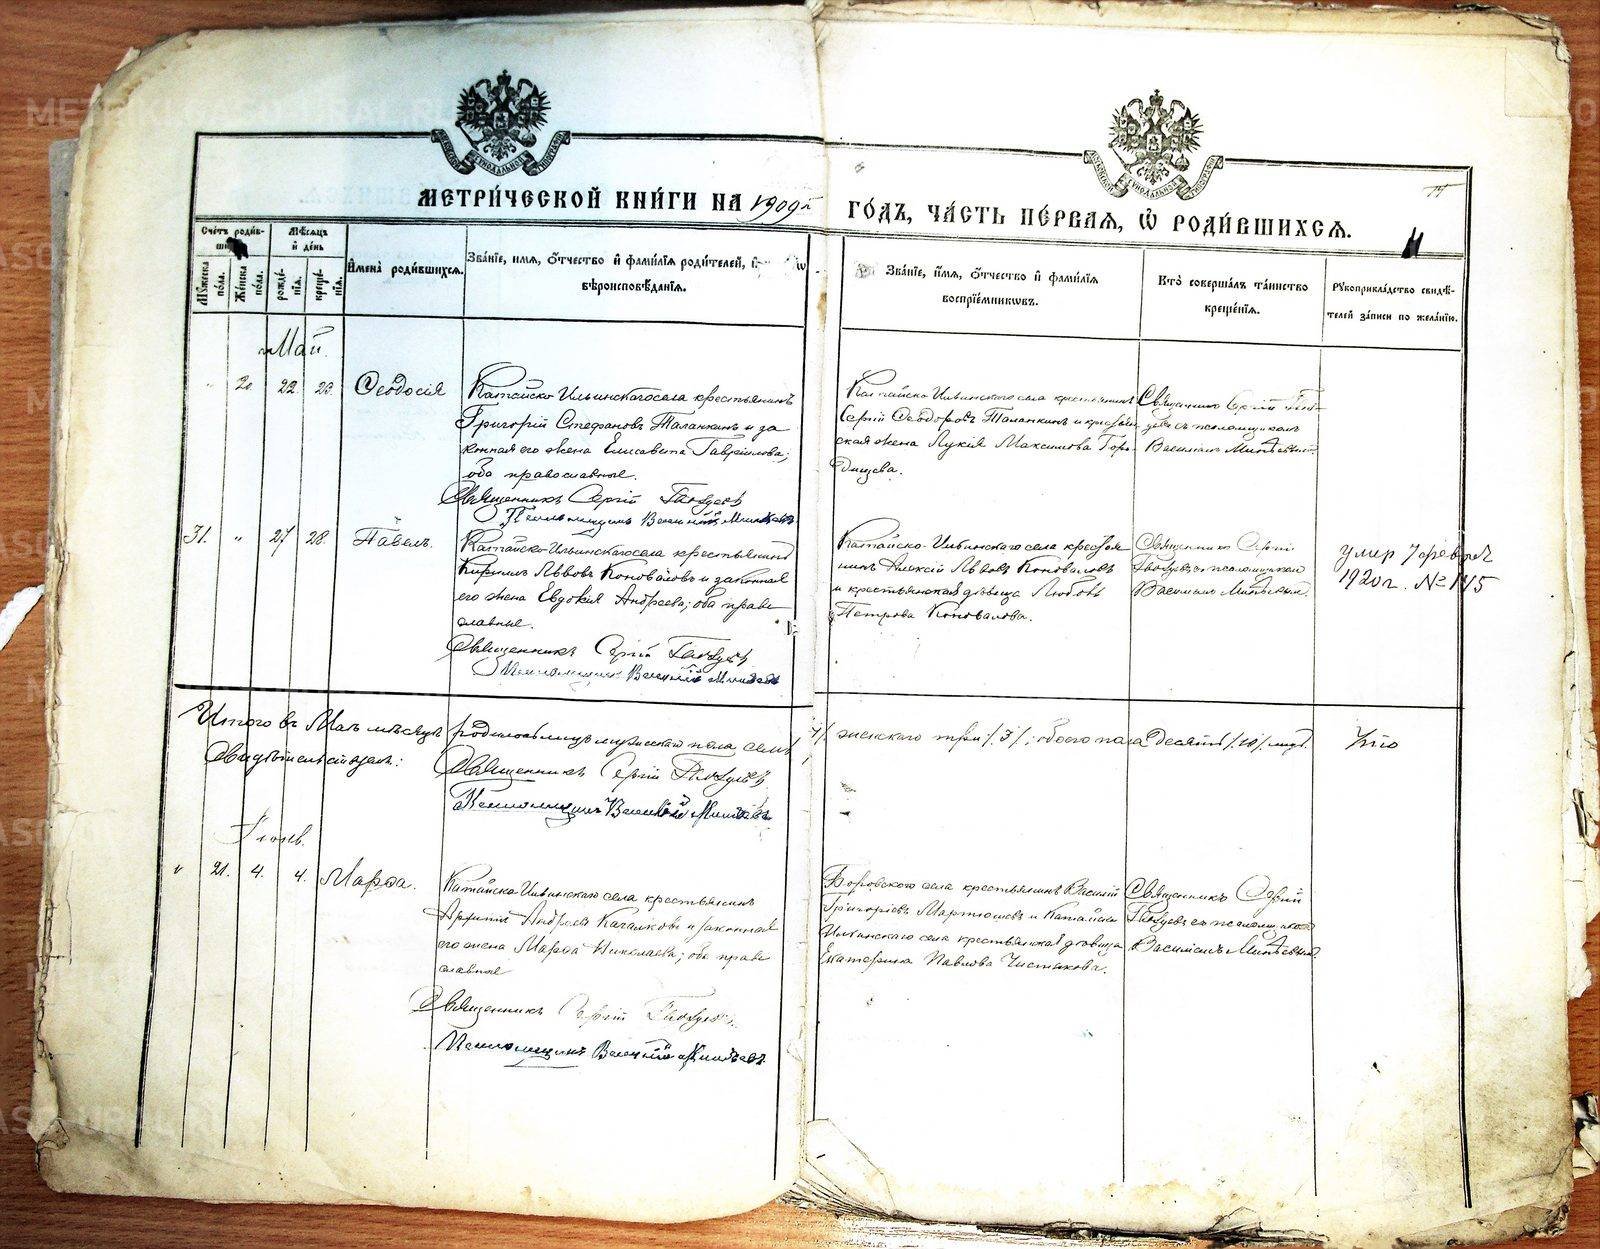 МЕТРИ́ЧЕСКОЙ КНИ́ГИ НА 1909й
ГО́ДЪ, ЧА́СТЬ ПЕ́РВАЯ, Ѡ҆ РОДИ́ВШИХСЯ.
Сче́тъ роди́в-
Мѣ́сяцъ
и҆ де́нь
Мꙋ́жеска по́ла.
Же́нска по́ла.
рожде́нїя.
креще́нїя.
И҆мена̀ роди́вшихся.
Зва́нїе, и҆мя, о҆́тчество и҆ фами́лїя роди́телей, и҆
вѣроисповѣ́данїя.
Зва́нїе, и҆́мя, о҆́тчество и҆ фами́лїя
воспрїе́мниковъ.
Кто̀ соверша́лъ та́инство
креще́нїя.
Рꙋкоприкла́дство свидѣ́-
телей за́писи по жела́нїю.
Май.
20. 22. 23. Ѳеодосія
Катайско-Ильинскаго села крестьянинъ
Григорій Стефановъ Таланкинъ и за
конная его жена Елисавета Гавріилова;
оба православные.
Священникъ Сергій
Псаломщикъ Василій
Катайско-Ильинскаго села крестьянинъ
Сергій Ѳеодоровъ Таланкинъ и крестьян
ская жена Лукія Максимова Горо-
дищева.
Священникъ Сергій
съ псаломщикомъ
Василіемъ
31. " 27 28. Павелъ.
Катайско-Ильинскаго села крестьянинъ
Кириллъ Львовъ Коноваловъ и законная
его жена Евдокія Андреева; оба право
славные.
Священникъ Сергій
Псаломщикъ Василій
Катайско-Ильинскаго села крестья
нинъ Алексій Львовъ Коноваловъ
и крестьянская дѣвица Любовь
Петрова Коновалова.
Священникъ Сергій
съ псаломщикомъ
Василіемъ
умер 7 февраля
1920 г. № 145
Итого въ Маѣ мѣсяцѣ родилось лицъ мужескаго пола семь
/7/ женскаго три /3/; обоего пола десять /10/ лицъ. Что
Свидѣтельствуемъ:
Священникъ Сергій
Псаломщикъ Василій
Іюнь.
" 21. 4. 4. Марѳа.
Катайско-Ильинскаго села крестьянинъ
Андреевъ и законная
его жена Марѳа Николаева; оба право
славные
Священникъ Сергій
Псаломщикъ Василій
Боровского села крестьянинъ Василій
Григорьевъ Мартюшевъ и Катайско
Ильинскаго села крестьянская дѣвица
Екатерина Павлова Чистякова.
Священникъ Сергій
съ псаломщикомъ
Василіемъ